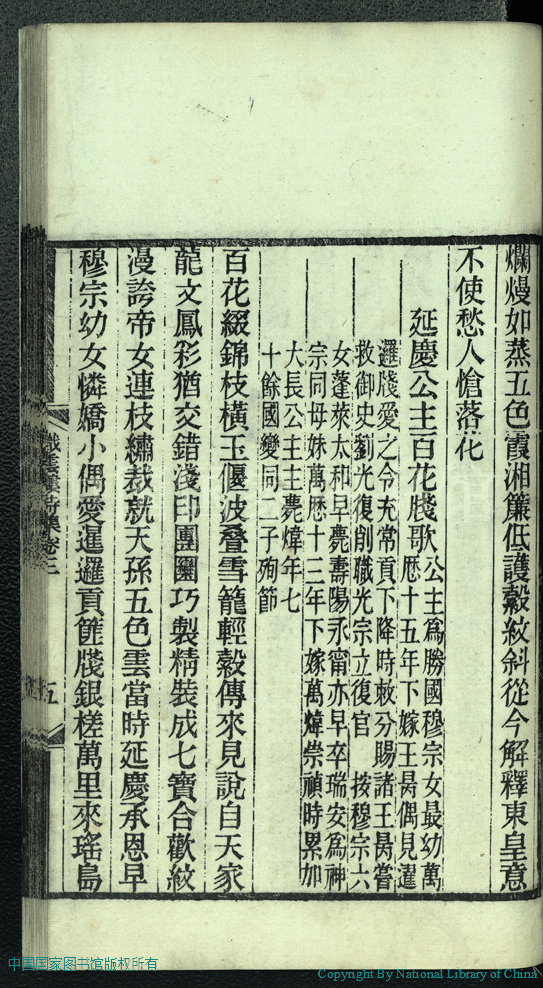 爛熳如蒸五色霞湘簾低護縠紋斜從今解釋東皇意
不使愁人愴落花
延慶公主百花牋歌
公主爲勝國穆宗女最幼萬
曆十五年下嫁王昺偶見暹
邏牋愛之令充常貢下降時敕分賜諸王昺嘗
救御史劉光復削職光宗立復官 按穆宗六
女蓬萊太和早薨壽陽永甯亦早卒瑞安爲神
宗同母妹萬曆十三年下嫁萬煒崇禎時累加
大長公主主薨煒年七
十餘國變同二子殉節
百花綴錦枝橫玉偃波叠雪籠輕縠傳來見說自天家
龍文鳳彩猶交錯淺印團圞巧製精裝成七寶合歡紋
漫誇帝女連枝繡裁就天孫五色雲當時延慶承恩早
穆宗幼女憐嬌小偶愛暹邏貢篚牋銀槎萬里來瑤島
五
中国国家图书馆版权所有
Copyright By National Library of China